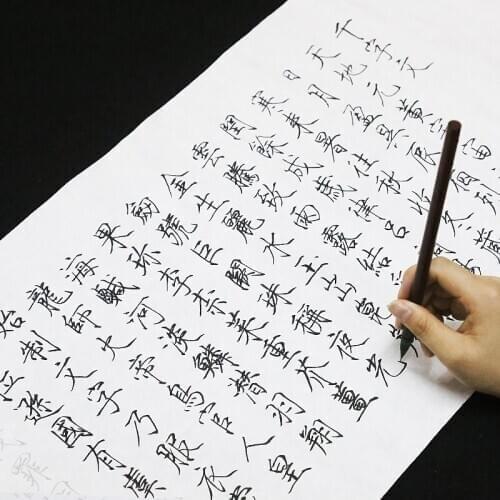 千字文
天地元黃宇宙
日月盈昃辰宿列
寒來暑往秋收冬藏
閏餘成歲律呂
雲騰致雨露結
金生麗水玉出崑
劍號巨闕珠稱夜光
果珍李柰菜重芥薑
海鹹河淡鱗潛羽翔
龍師火帝鳥官人皇
始制文字乃服衣裳
位遜國有虞